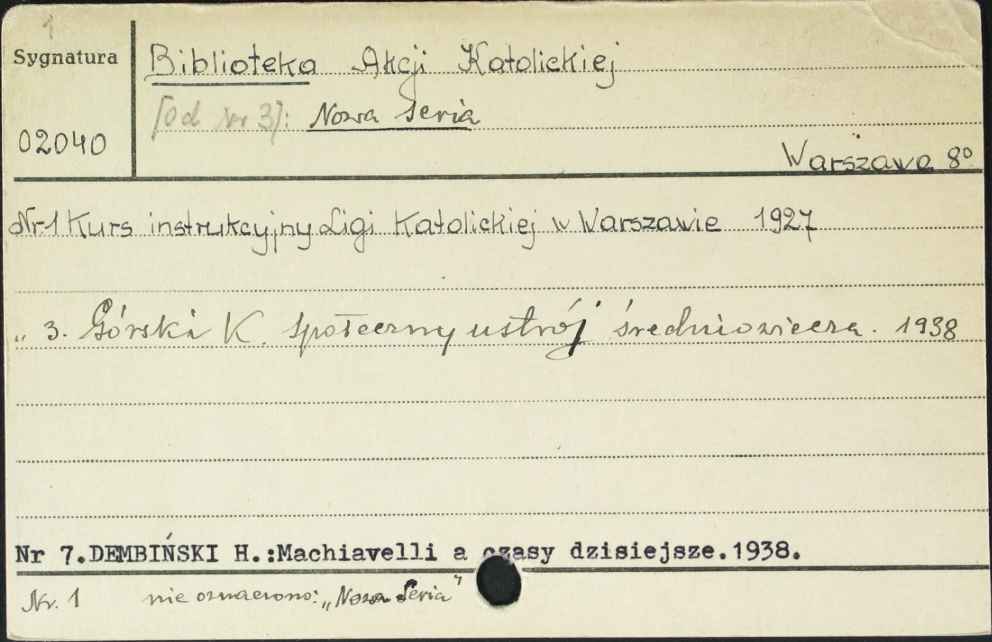 1
Sygnatura
Biblioteka Akcji Katolickiej
[Od nr 3]: Nowa Seria
02040
Warszawa 8°
Nr 1 Kurs instrukcyjny Ligi Katolickiej w Warszawie 1927
„ 3. Górski K. Społeczny ustrój średniowiecza. 1938
Nr 7. DEMBIŃSKI H.:Machiavelli a czasy dzisiejsze.1938.
Nr. 1 nie oznaczono: „Nowa Seria”